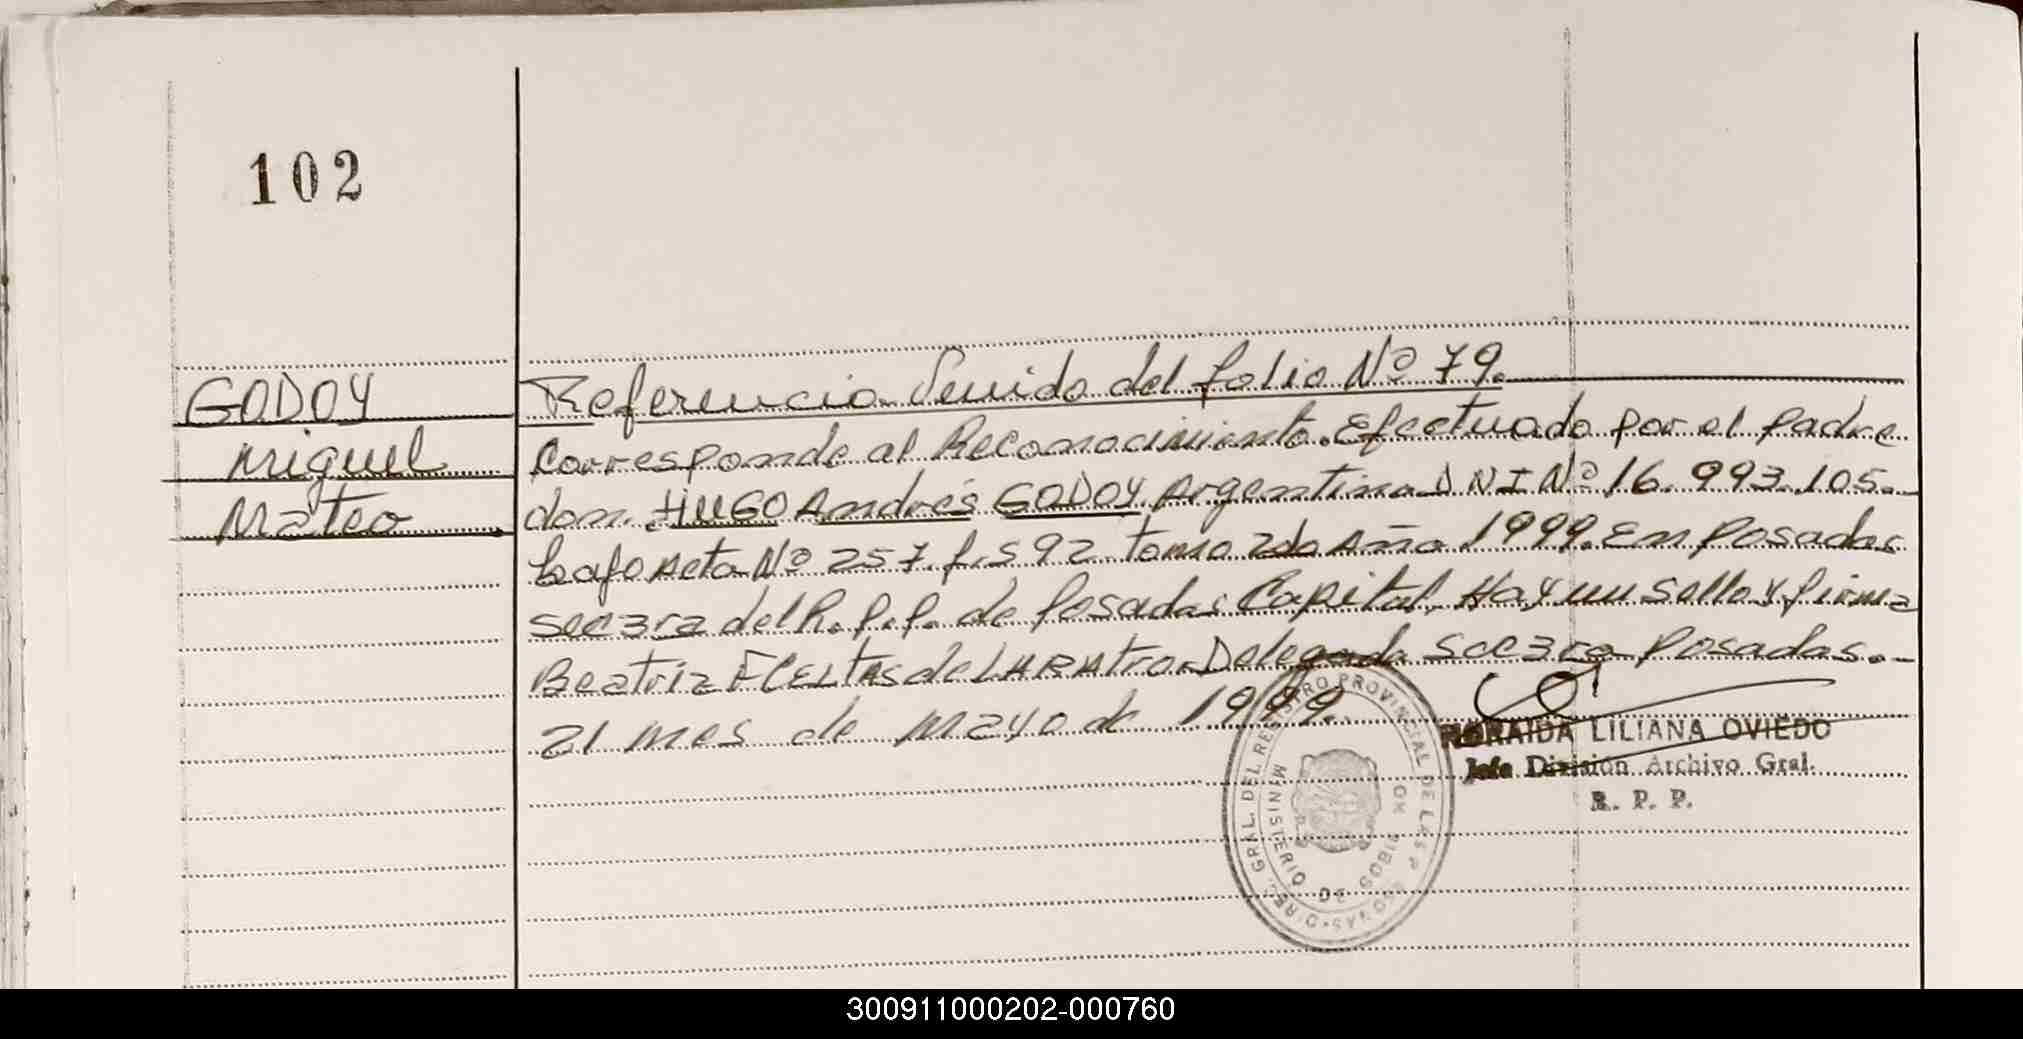 102
GODOY
Miguel
Mateo
Referencia Venido del folio Nº 79.
Corresponde al Reconocimiento. Efectuado por el padre
don. HUGO Andrés GODOY. Argentino D N I Nº 16.993.105.-
bajo Acta Nº 257. f. 592 tomo 2do Año 1999. En Posadas
Sec 3ra del R. P. P. de Posadas Capital. Hay un sello y firma
Beatriz de Delegada Sec 3ra Posadas.-
21 mes de Mayo de 1999.
LILIANA OVIEDO
Jefe División Archivo Gral.
R. P. P.
DIREC. GRAL. DEL REGISTRO PROVINCIAL DE LAS PERSONAS
MINISTERIO DE GOBIERNO
300911000202-000760